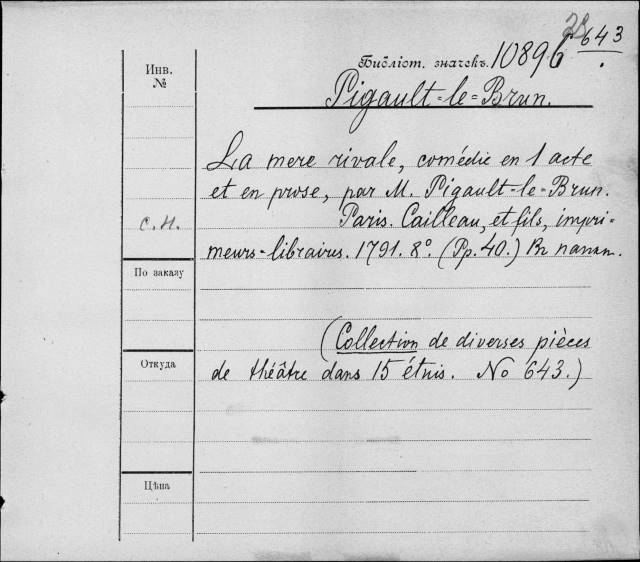 28
643
Библіот. значекъ. 10896
Инв.
№
Pigault-le-Brun.
La mere rivale, comédie en 1 acte
et en prose, par M. Pigault-le-Brun.
с. н. Paris. Cailleau, et fils, impri-
meurs-libraires. 1791. 8°. (Pp. 40.) Въ папк.
По заказу
(Collection de diverses pièces
Откуда
de théâtre dans 15 étuis. No 643.)
Цѣна